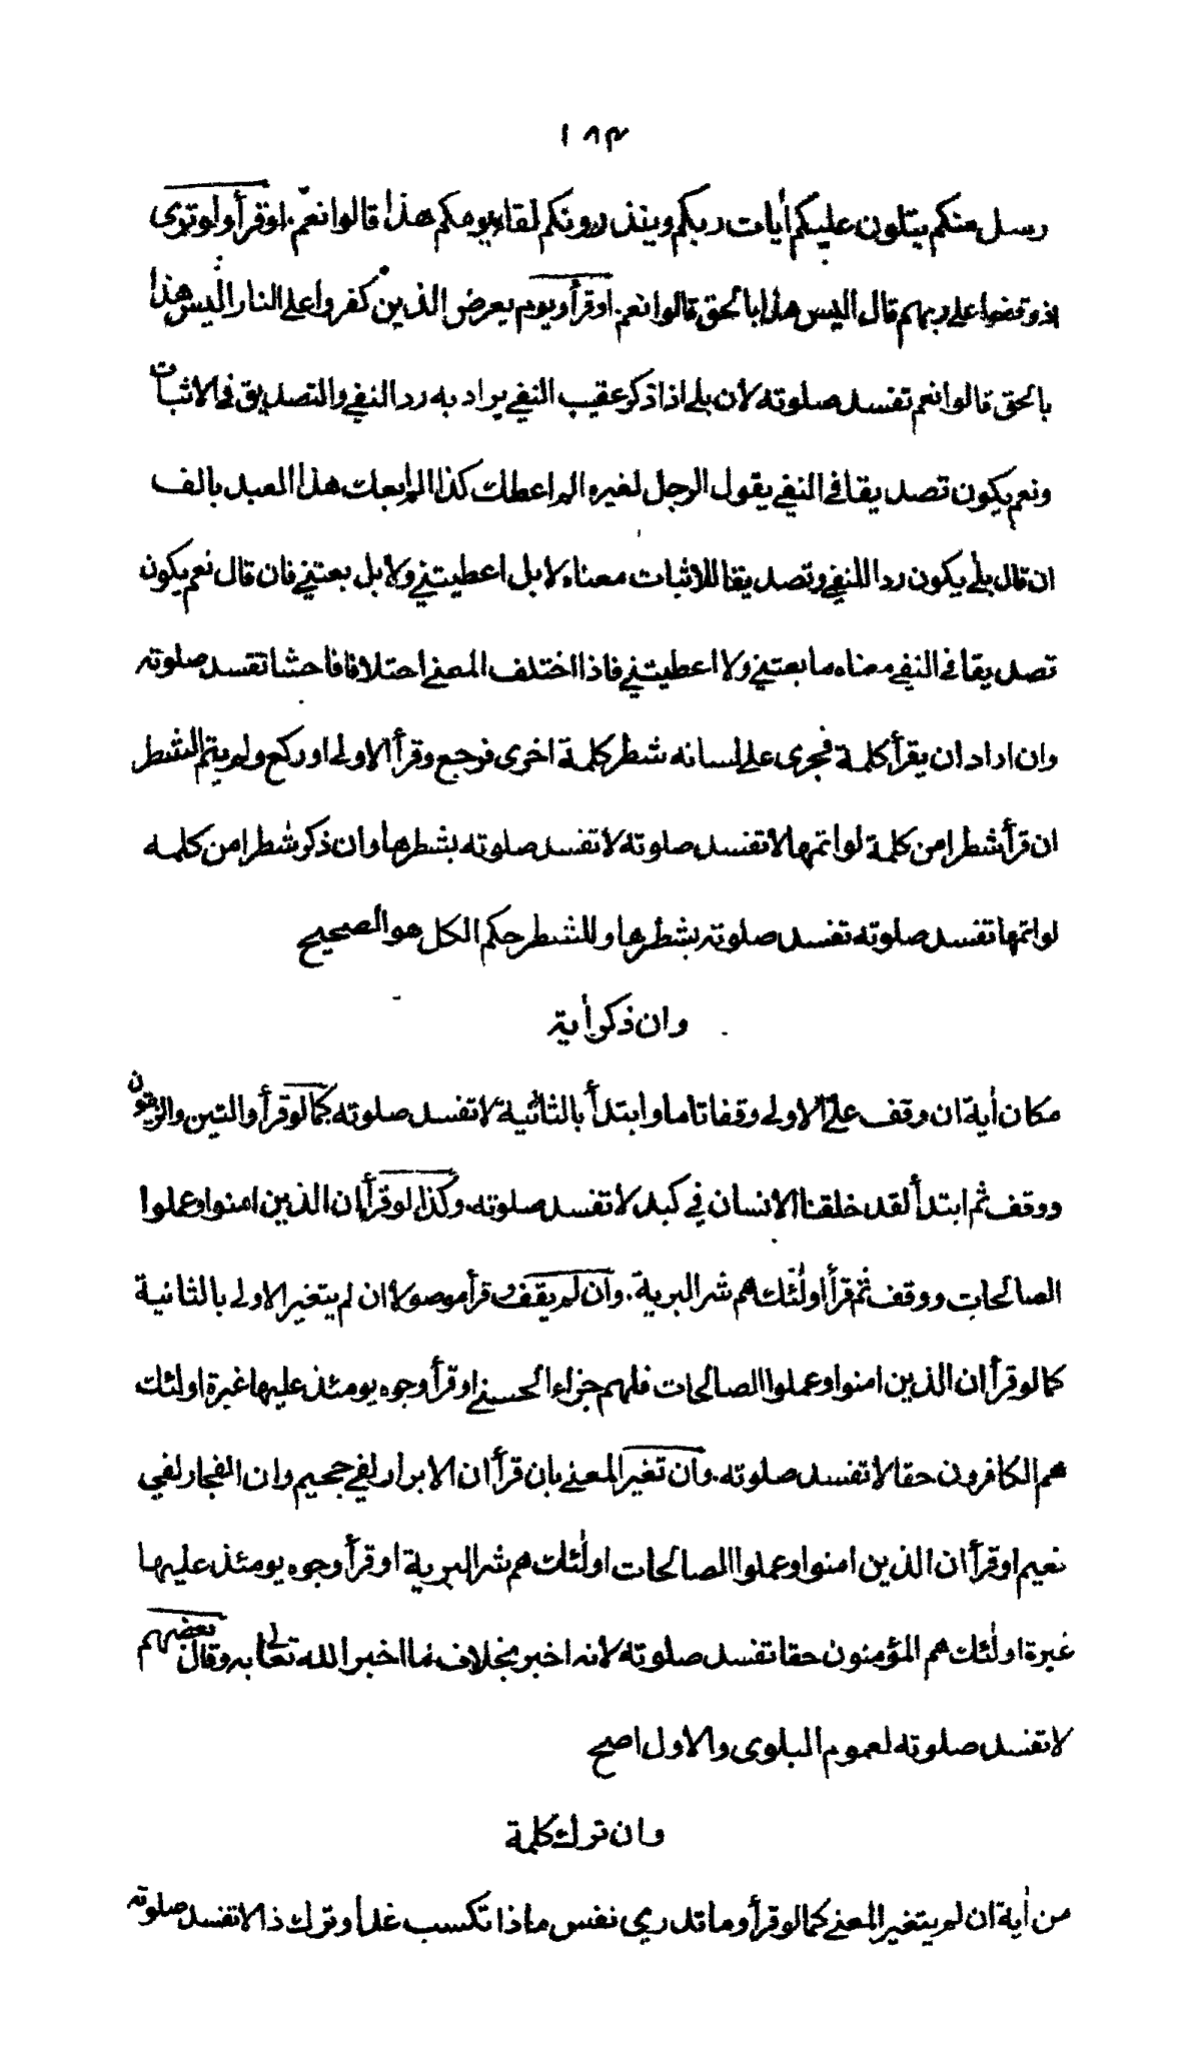 ١٨٣
رسل منكم يتلون عليكم اٰيات ربكم وينذرونكم لقاء يومكم هذا قالوا نعم. اوقرأ ولو ترى
اذ وقفوا على ربهم قال اليس هذا بالحق قالوا نعم. اوقرأ ويوم يعرض الذين كفروا على النار اليس هذا
بالحق قالوا نعم تفسد صلوته لان بلى اذا ذكر عقيب النفي يراد به رد النفي والتصديق في الاثبات
ونعم يكون تصديقا في النفي يقول الرجل لغيره الم اعطك كذا الم ابعك هذا العبد بالف
ان قال بلى يكون ردا للنفي وتصديقا للاثبات معناه لا بل اعطيتني ولا بل بعتني فان قال نعم يكون
تصديقا في النفي معناه ما بعتني ولا اعطيتني فاذا اختلف المعنى احتلافا فاحشا تفسد صلوته
وان اراد ان يقرأ كلمة فجرى على لسانه شطر كلمة اخرى فرجع وقرأ الاولى او ركع ولم يتم الشطر
ان قرأ شطرا من كلمة لو اتمها لا تفسد صلوته لا تفسد صلوته بشطرها وان ذكر شطرا من كلمه
لو اتمها تفسد صلوته تفسد صلوته بشطرها وللشطر حكم الكل هو الصحيح
وان ذكر اٰية
مكان اٰية ان وقف على الاولى وقفا تاما وابتدأ بالثانية لا تفسد صلوته كما لو قرأ والتين والزيتون
ووقف ثم ابتدأ لقد خلقنا الانسان في كبد لا تفسد صلوته. وكذا لو قرأ ان الذين امنوا وعملوا
الصالحات ووقف ثم قرأ اولٰئك هم شر البرية. وان لم يقف وقرأ موصولا ان لم يتغير الاولى بالثانية
كما لو قرأ ان الذين امنوا وعملوا الصالحات فلهم جزاء الحسنى اوقرأ وجوه يومئذ عليها غبرة اولئك
هم الكافرون حقا لا تفسد صلوته. وان تغير المعنى بان قرأ ان الابرار لفي جحيم وان الفجار لفي
نعيم اوقرأ ان الذين امنوا وعملوا الصالحات اولٰئك هم شر البرية اوقرأ وجوه يومئذ عليها
غبرة اولٰئك هم المؤمنون حقا تفسد صلوته لانه اخبر بخلاف ما اخبر الله تعالى به وقال بعضهم
لا تفسد صلوته لعموم البلوى والاول اصح
وان ترك كلمة
من اٰية ان لم يتغير المعنى كما لو قرأ وما تدري نفس ماذا تكسب غدا وترك ذا لا تفسد صلوته